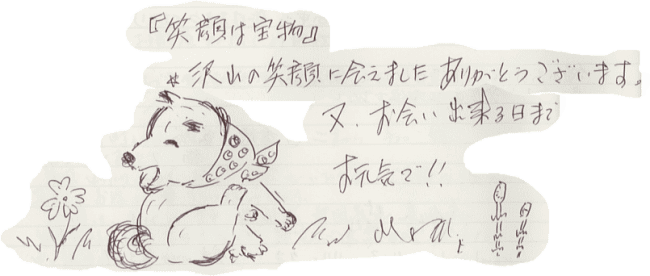 『笑顔は宝物』
沢山の笑顔に会えました ありがとうございます。
又、お会い出来る日まで
お元気で!!